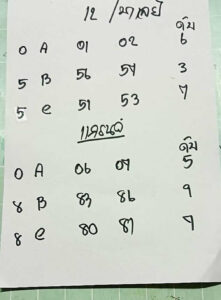 12 / มาเลย์
ดับ
0 A 01 02 6
5 B 56 57 3
5 C 51 53 7
แครนด์
ดับ
0 A 06 07 5
8 B 83 86 9
8 C 80 87 7